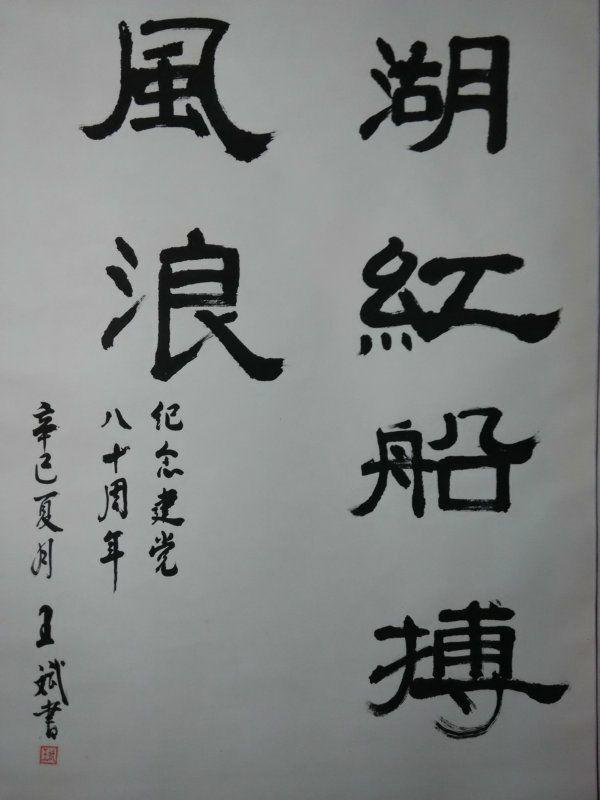 湖紅船搏
風浪
纪念建党
八十周年
辛巳夏月 王斌書